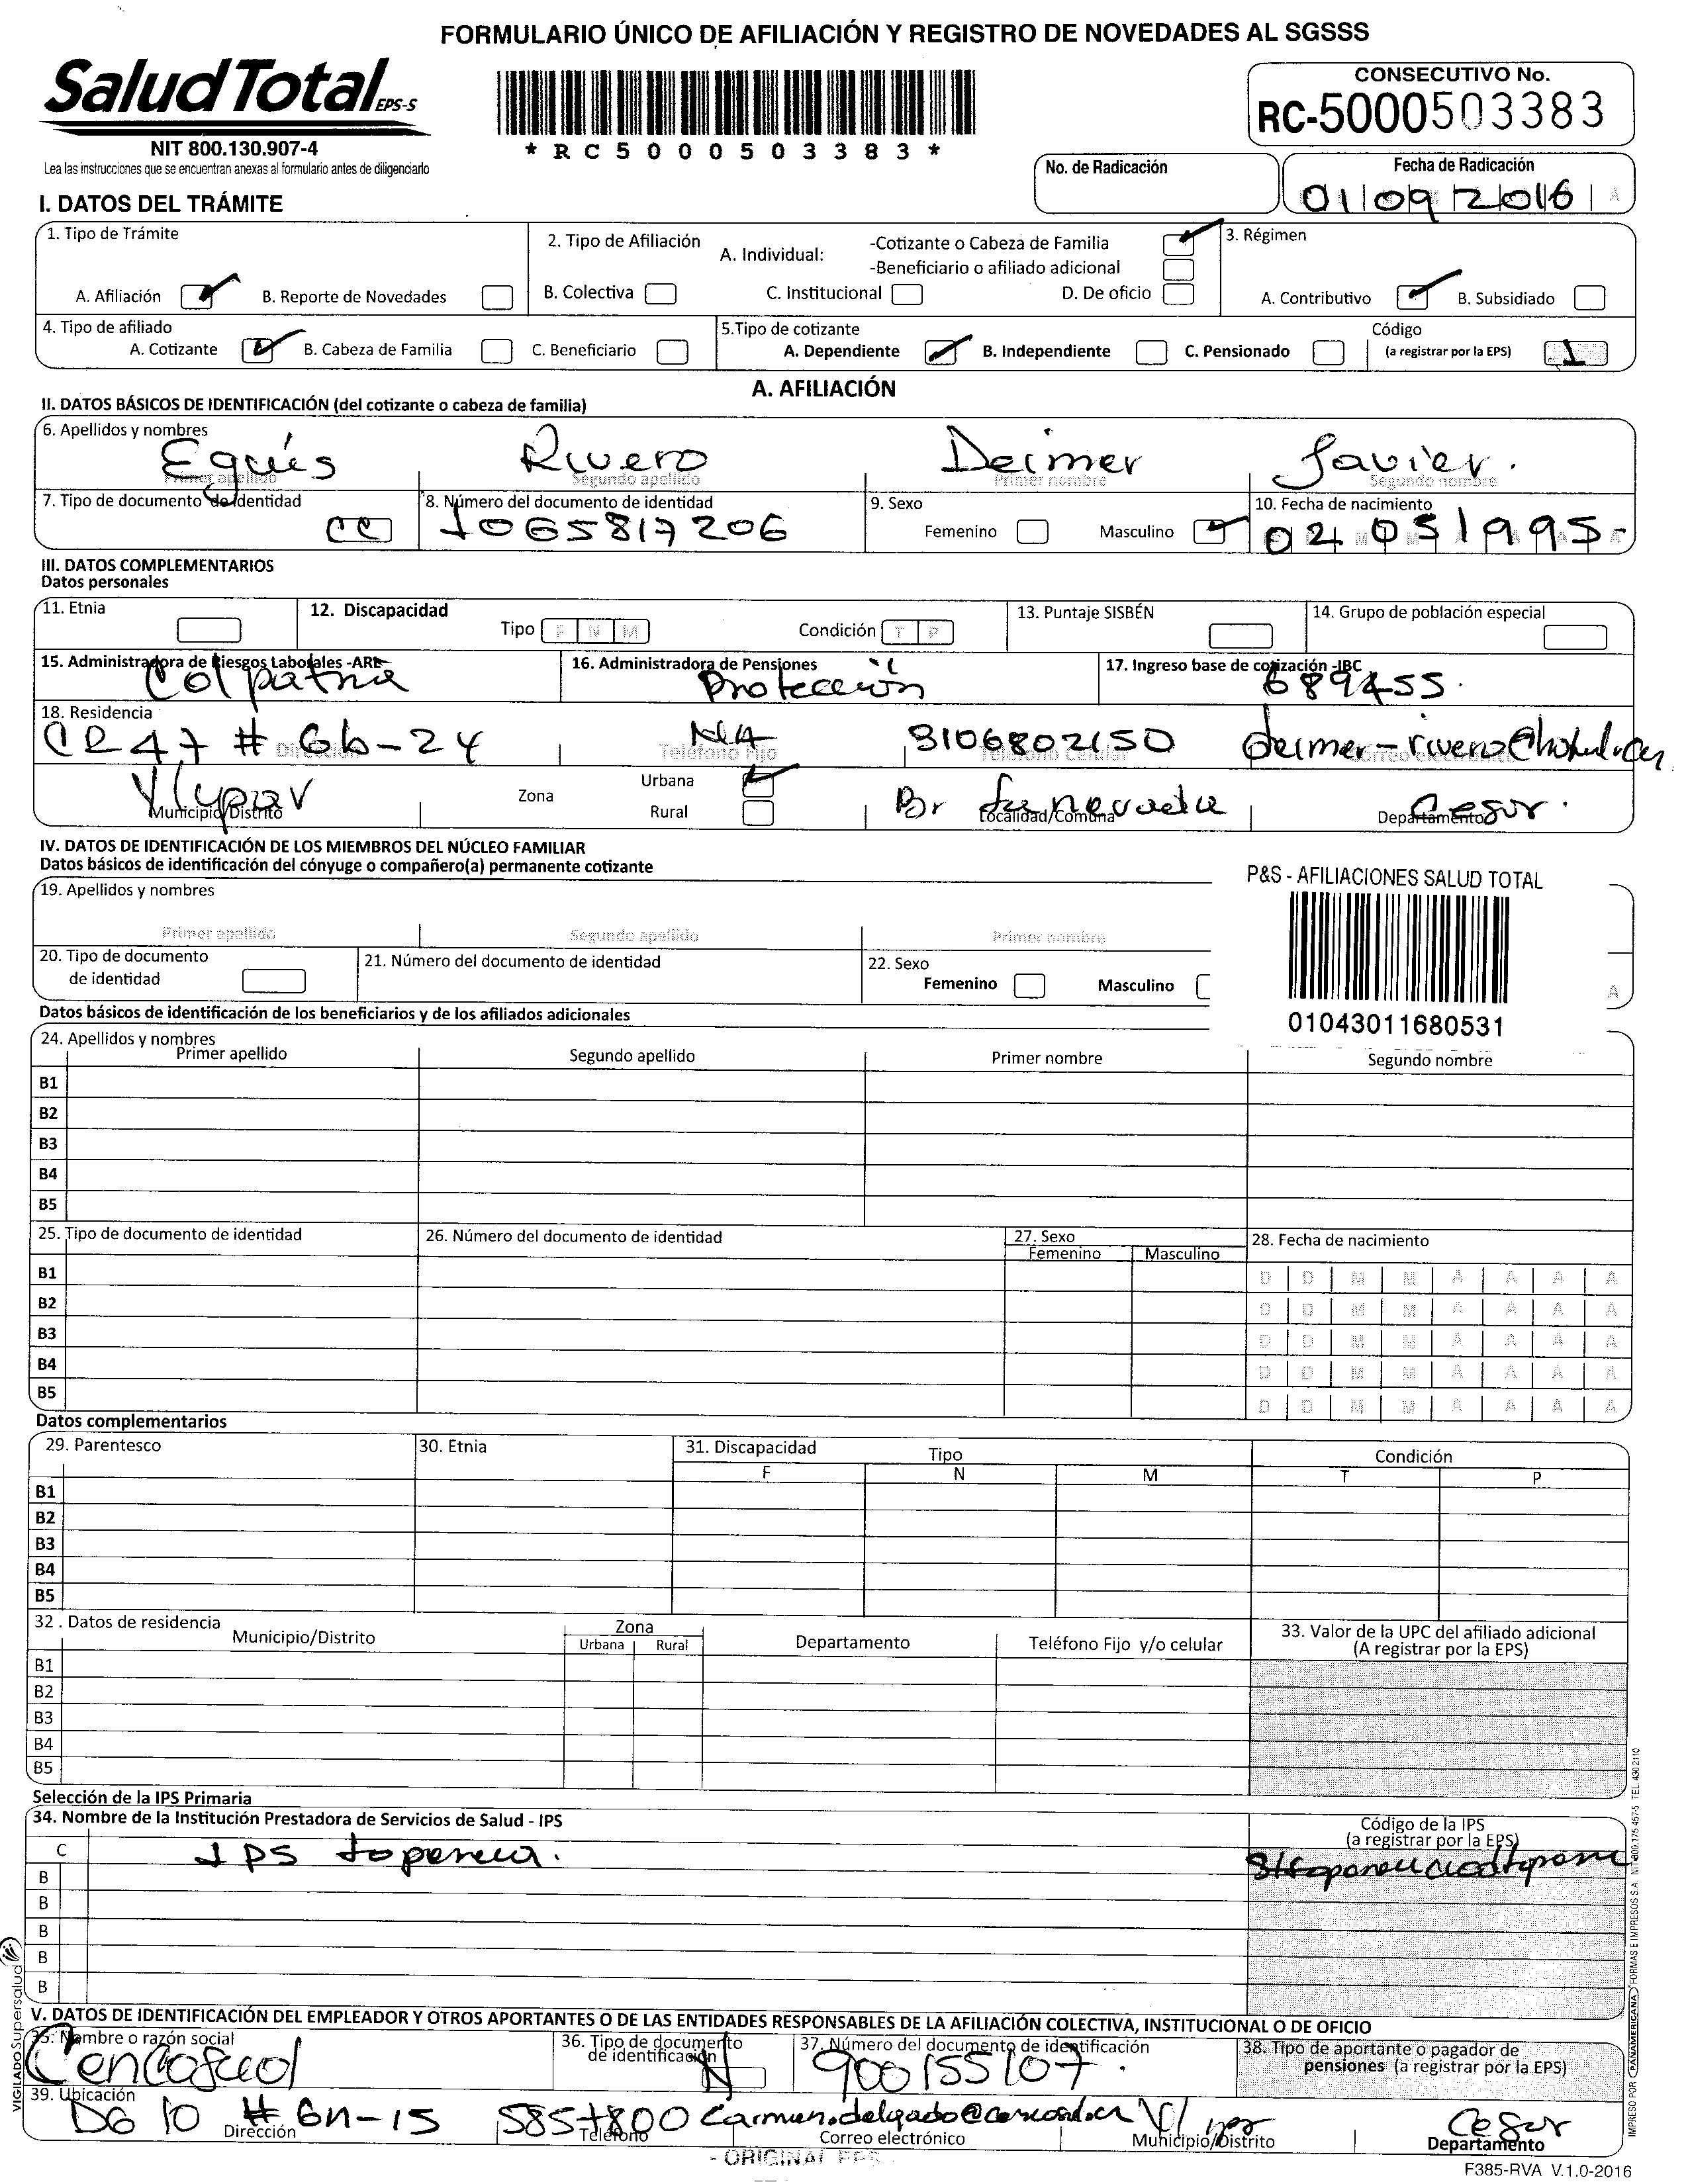 FORMULARIO ÚNICO DE AFILIACIÓN Y REGISTRO DE NOVEDADES AL SGSSS
SaludTotal EPS-S
NIT 800.130.907-4
Lea las instrucciones que se encuentran anexas al formulario antes de diligenciarlo
*RC5000503383*
CONSECUTIVO No.
RC-5000503383
No. de Radicación
Fecha de Radicación
01 09 2016 A
I. DATOS DEL TRÁMITE
1. Tipo de Trámite
A. Afiliación B. Reporte de Novedades
2. Tipo de Afiliación A. Individual: -Cotizante o Cabeza de Familia
-Beneficiario o afiliado adicional
B. Colectiva C. Institucional D. De oficio
3. Régimen
A. Contributivo B. Subsidiado
4. Tipo de afiliado
A. Cotizante B. Cabeza de Familia C. Beneficiario
5.Tipo de cotizante
A. Dependiente B. Independiente C. Pensionado
Código
(a registrar por la EPS) 1
A. AFILIACIÓN
II. DATOS BÁSICOS DE IDENTIFICACIÓN (del cotizante o cabeza de familia)
6. Apellidos y nombres
Eguis Rivero Deimer Javier.
Primer apellido Segundo apellido Primer nombre Segundo nombre
7. Tipo de documento de identidad CC
8. Número del documento de identidad
1065817206
9. Sexo
Femenino Masculino
10. Fecha de nacimiento
02 05 1995
III. DATOS COMPLEMENTARIOS
Datos personales
11. Etnia
12. Discapacidad
Tipo F N M Condición T P
13. Puntaje SISBÉN
14. Grupo de población especial
15. Administradora de Riesgos Laborales -ARL
Colpatria
16. Administradora de Pensiones
Protección
17. Ingreso base de cotización -IBC
689455.
18. Residencia
CR 47 # 6b-24 N/A 3106802150
Dirección Teléfono Fijo Teléfono Celular Correo electrónico
Vlupar Zona Urbana
Rural
Br La nevada Cesar.
Municipio/Distrito Localidad/Comuna Departamento
IV. DATOS DE IDENTIFICACIÓN DE LOS MIEMBROS DEL NÚCLEO FAMILIAR
Datos básicos de identificación del cónyuge o compañero(a) permanente cotizante
19. Apellidos y nombres
Primer apellido Segundo apellido Primer nombre
P&S - AFILIACIONES SALUD TOTAL
01043011680531
20. Tipo de documento
de identidad
21. Número del documento de identidad
22. Sexo
Femenino Masculino
A
Datos básicos de identificación de los beneficiarios y de los afiliados adicionales
24. Apellidos y nombres
Primer apellido Segundo apellido Primer nombre Segundo nombre
B1
B2
B3
B4
B5
25. Tipo de documento de identidad 26. Número del documento de identidad 27. Sexo 28. Fecha de nacimiento
Femenino Masculino
B1 D D M M A A A A
B2 D D M M A A A A
B3 D D M M A A A A
B4 D D M M A A A A
B5 D D M M A A A A
Datos complementarios
29. Parentesco 30. Etnia 31. Discapacidad Tipo Condición
F N M T P
B1
B2
B3
B4
B5
32 . Datos de residencia
Municipio/Distrito Zona Departamento Teléfono Fijo y/o celular
Urbana Rural
33. Valor de la UPC del afiliado adicional
(A registrar por la EPS)
B1
B2
B3
B4
B5
Selección de la IPS Primaria
34. Nombre de la Institución Prestadora de Servicios de Salud - IPS
Código de la IPS
(a registrar por la EPS)
C IPS
B
B
B
B
B
V. DATOS DE IDENTIFICACIÓN DEL EMPLEADOR Y OTROS APORTANTES O DE LAS ENTIDADES RESPONSABLES DE LA AFILIACIÓN COLECTIVA, INSTITUCIONAL O DE OFICIO
35. Nombre o razón social
Cencosud
36. Tipo de documento
de identificación
N
37. Número del documento de identificación
900155107.
38. Tipo de aportante o pagador de
pensiones (a registrar por la EPS)
39. Ubicación
DG 10 # 6n-15 5857800 Cesar
Dirección Teléfono Correo electrónico Municipio/Distrito Departamento
- ORIGINAL EPS -
F385-RVA V.1.0-2016
VIGILADO Supersalud
IMPRESO POR PANAMERICANA FORMAS E IMPRESOS S.A. NIT 800.175.457-5 TEL. 430 2110